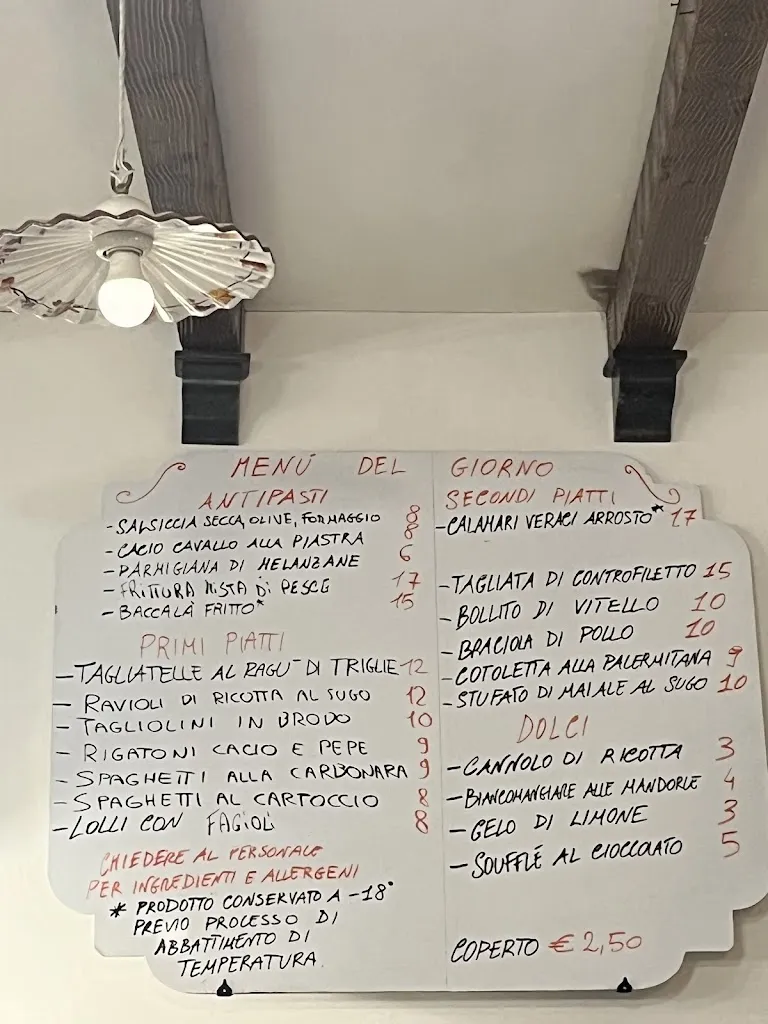 MENÚ DEL GIORNO
ANTIPASTI
- SALSICCIA SECCA, OLIVE, FORMAGGIO 8
- CACIO CAVALLO ALLA PIASTRA 8
- PARMIGIANA DI MELANZANE 6
- FRITTURA MISTA DI PESCE 17
- BACCALÀ FRITTO* 15
PRIMI PIATTI
- TAGLIATELLE AL RAGÙ DI TRIGLIE 12
- RAVIOLI DI RICOTTA AL SUGO 12
- TAGLIOLINI IN BRODO 10
- RIGATONI CACIO E PEPE 9
- SPAGHETTI ALLA CARBONARA 9
- SPAGHETTI AL CARTOCCIO 8
- LOLLI CON FAGIOLI 8
CHIEDERE AL PERSONALE
PER INGREDIENTI E ALLERGENI
* PRODOTTO CONSERVATO A -18°
PREVIO PROCESSO DI
ABBATTIMENTO DI
TEMPERATURA
SECONDI PIATTI
- CALAMARI VERACI ARROSTO* 17
- TAGLIATA DI CONTROFILETTO 15
- BOLLITO DI VITELLO 10
- BRACIOLA DI POLLO 10
- COTOLETTA ALLA PALERMITANA 9
- STUFATO DI MAIALE AL SUGO 10
DOLCI
- CANNOLO DI RICOTTA 3
- BIANCOMANGIARE ALLE MANDORLE 4
- GELO DI LIMONE 3
- SOUFFLÉ AL CIOCCOLATO 5
COPERTO € 2,50